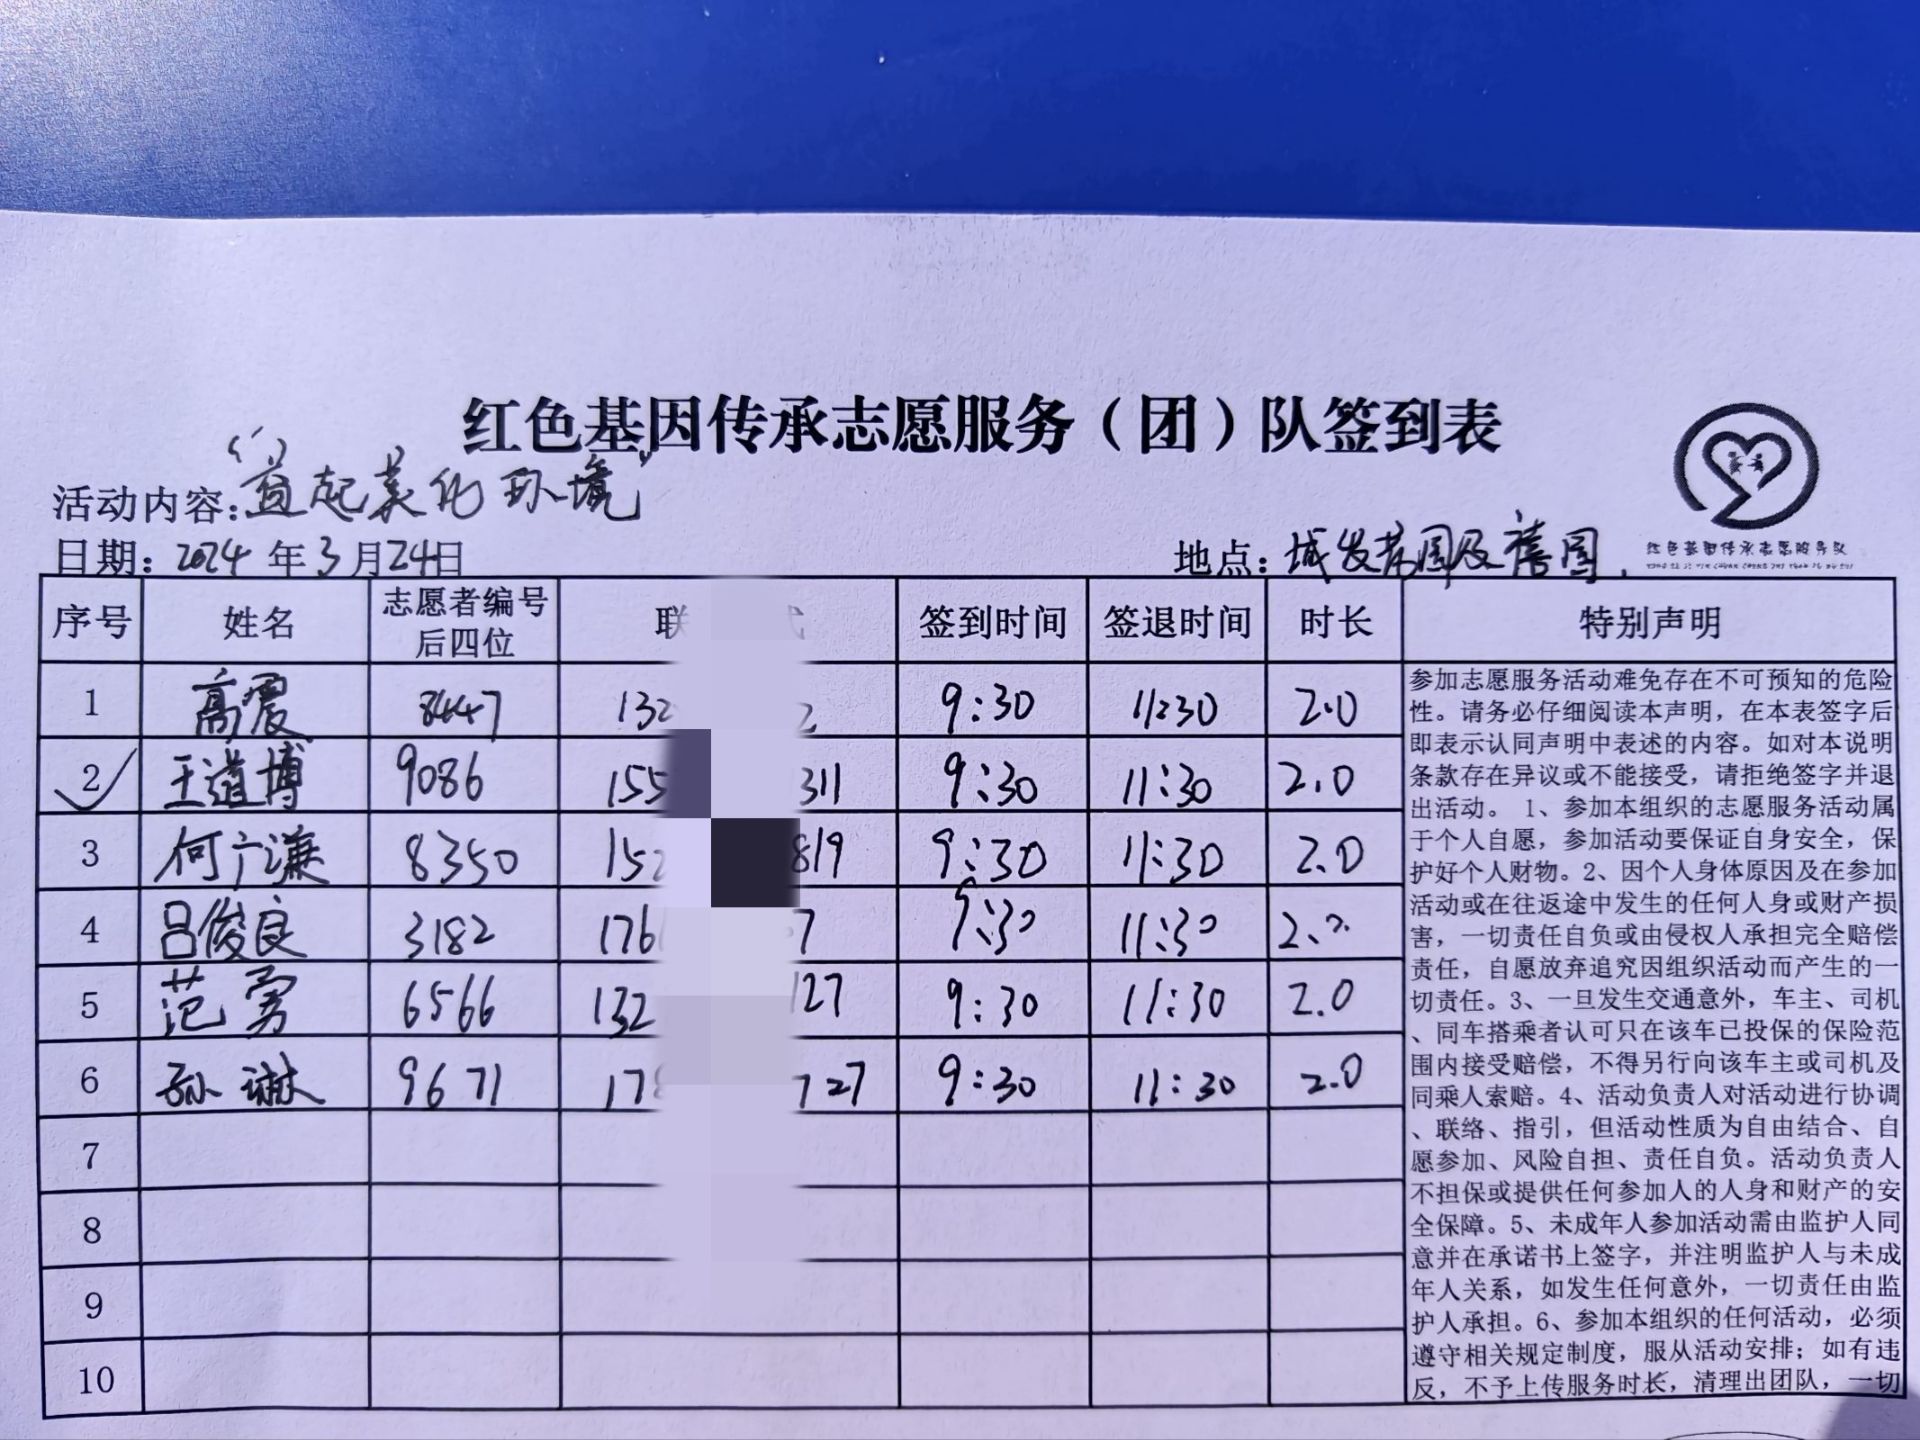 红色基因传承志愿服务（团）队签到表
活动内容：“益起美化环境”
日期：2024年3月24日
地点：城发茗园及禧园
红色基因传承志愿服务队
序号 姓名 志愿者编号后四位 联 签到时间 签退时间 时长 特别声明
1 高震 8447 132 2 9:30 11:30 2.0
2 王道博 9086 155 311 9:30 11:30 2.0
3 何广谦 8350 152 819 9:30 11:30 2.0
4 吕俊良 3182 176 7 9:30 11:30 2.0
5 范勇 6566 132 127 9:30 11:30 2.0
6 孙琳 9671 178 727 9:30 11:30 2.0
7
8
9
10
参加志愿服务活动难免存在不可预知的危险
性。请务必仔细阅读本声明，在本表签字后
即表示认同声明中表述的内容。如对本说明
条款存在异议或不能接受，请拒绝签字并退
出活动。 1、参加本组织的志愿服务活动属
于个人自愿，参加活动要保证自身安全，保
护好个人财物。2、因个人身体原因及在参加
活动或在往返途中发生的任何人身或财产损
害，一切责任自负或由侵权人承担完全赔偿
责任，自愿放弃追究因组织活动而产生的一
切责任。3、一旦发生交通意外，车主、司机
、同车搭乘者认可只在该车已投保的保险范
围内接受赔偿，不得另行向该车主或司机及
同乘人索赔。4、活动负责人对活动进行协调
、联络、指引，但活动性质为自由结合、自
愿参加、风险自担、责任自负。活动负责人
不担保或提供任何参加人的人身和财产的安
全保障。5、未成年人参加活动需由监护人同
意并在承诺书上签字，并注明监护人与未成
年人关系，如发生任何意外，一切责任由监
护人承担。6、参加本组织的任何活动，必须
遵守相关规定制度，服从活动安排；如有违
反，不予上传服务时长，清理出团队，一切